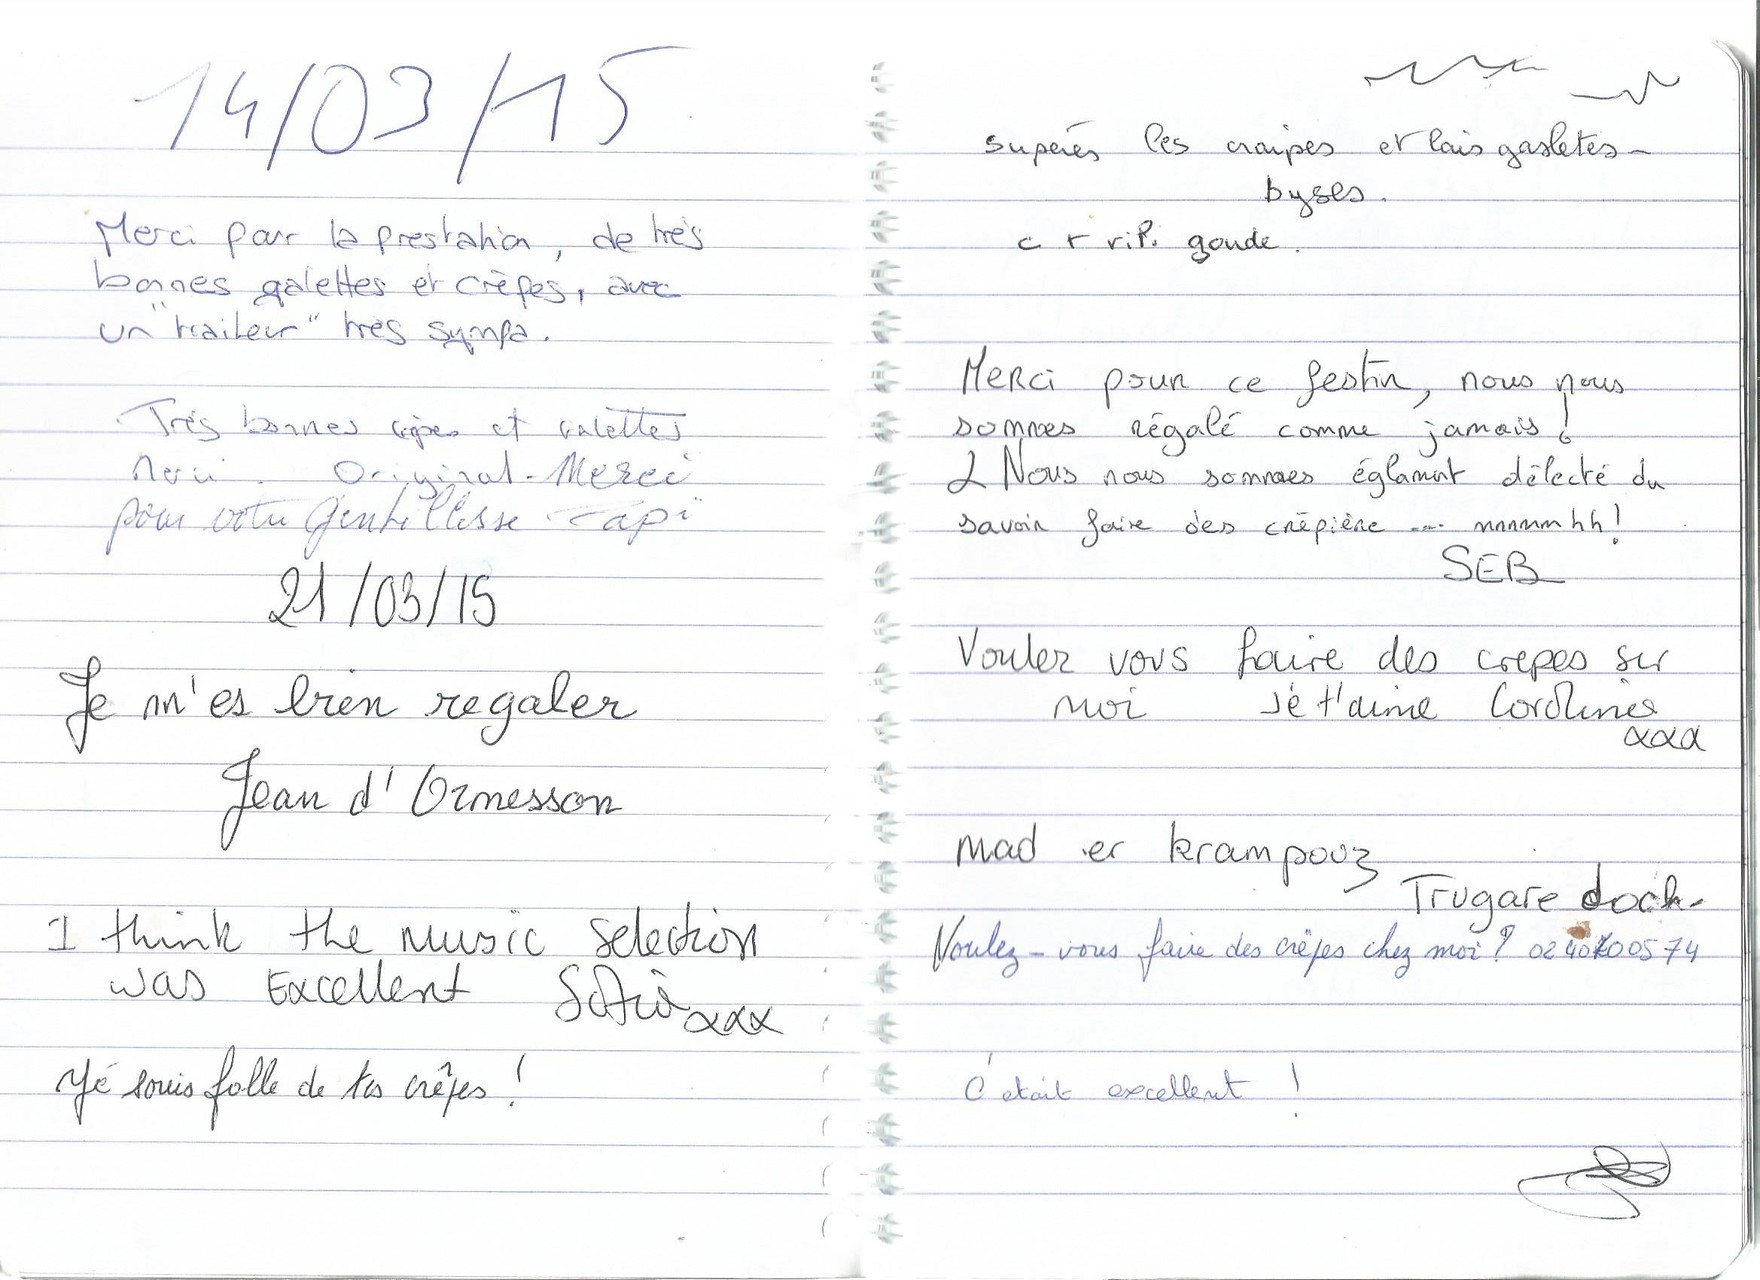 14/03/15
Merci pour la prestation, de très
bonnes galettes et crêpes, avec
un "traiteur" très sympa.
Très bonnes crêpes et galettes
Merci. Original - Merci
pour votre Gentillesse
21/03/15
Je m'es bien regaler
Jean d'Ormesson
I think the music selection
was Excellent xxx
Yé souis folle de tes crêpes !
supérés les craipes et lais gasletes -
byses.
goude.
Merci pour ce festin, nous nous
sommes régalé comme jamais !
Nous nous sommes églamnt délecté du
savoir faire des crêpière ... mmmmhh!
SEB
Voulez vous faire des crepes sur
moi Jé t'aime
xxx
mad er krampouz
Trugare dock.
Voulez-vous faire des crêpes chez moi ?
C'était excellent !